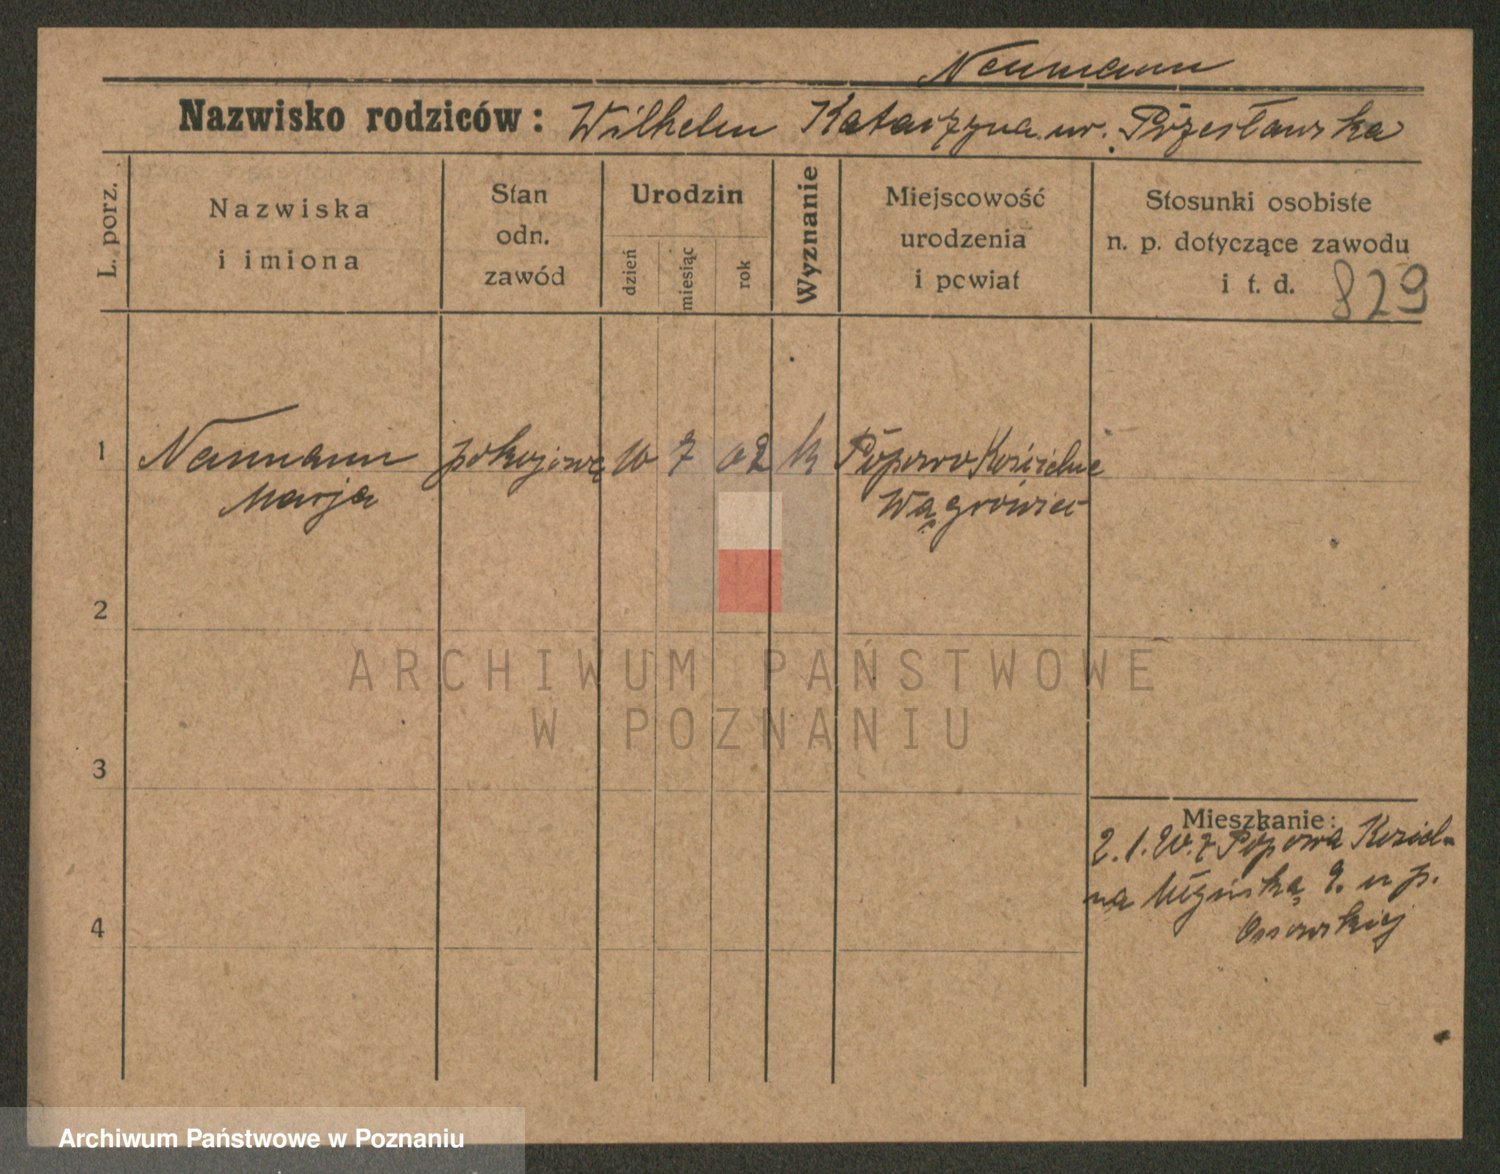 Neumann
Nazwisko rodziców: Wilhelm Katarzyna ur. Przesławska
L. porz.
Nazwiska
i imiona
Stan
odn.
zawód
Urodzin
dzień
miesiąc
rok
Wyznanie
Miejscowość
urodzenia
i powiat
Stosunki osobiste
n. p. dotyczące zawodu
i t. d.
829
1 Neumann pokojowa 10 7 02 k Popowo Kościelne
Marja Wągrówiec
2
ARCHIWUM PAŃSTWOWE
W POZNANIU
3
Mieszkanie:
2.1.20. z Popowa Kościel-
na 2. u p.
4
Ossowskiej
Archiwum Państwowe w Poznaniu